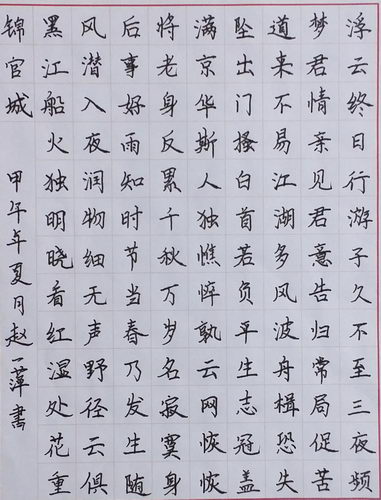 浮云终日行游子久不至三夜频
梦君情亲见君意告归常局促苦
道来不易江湖多风波舟楫恐失
坠出门搔白首若负平生志冠盖
满京华斯人独憔悴孰云网恢恢
将老身反累千秋万岁名寂寞身
后事好雨知时节当春乃发生随
风潜入夜润物细无声野径云俱
黑江船火独明晓看红湿处花重
锦官城 甲午年夏月赵一萍書